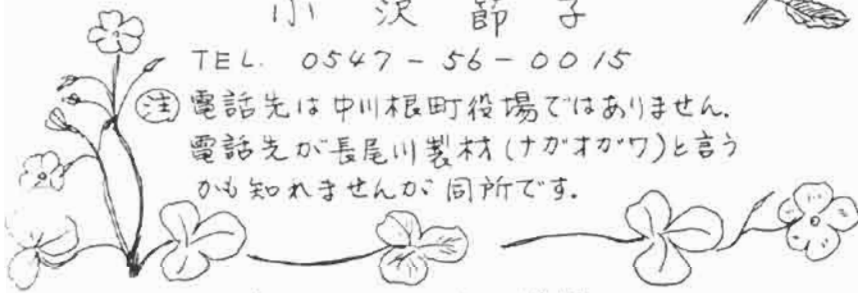 小沢節子
TEL. 0547-56-0015
㊟ 電話先は中川根町役場ではありません.
電話先が長尾川製材(ナガオガワ)と言う
かも知れませんが同所です.